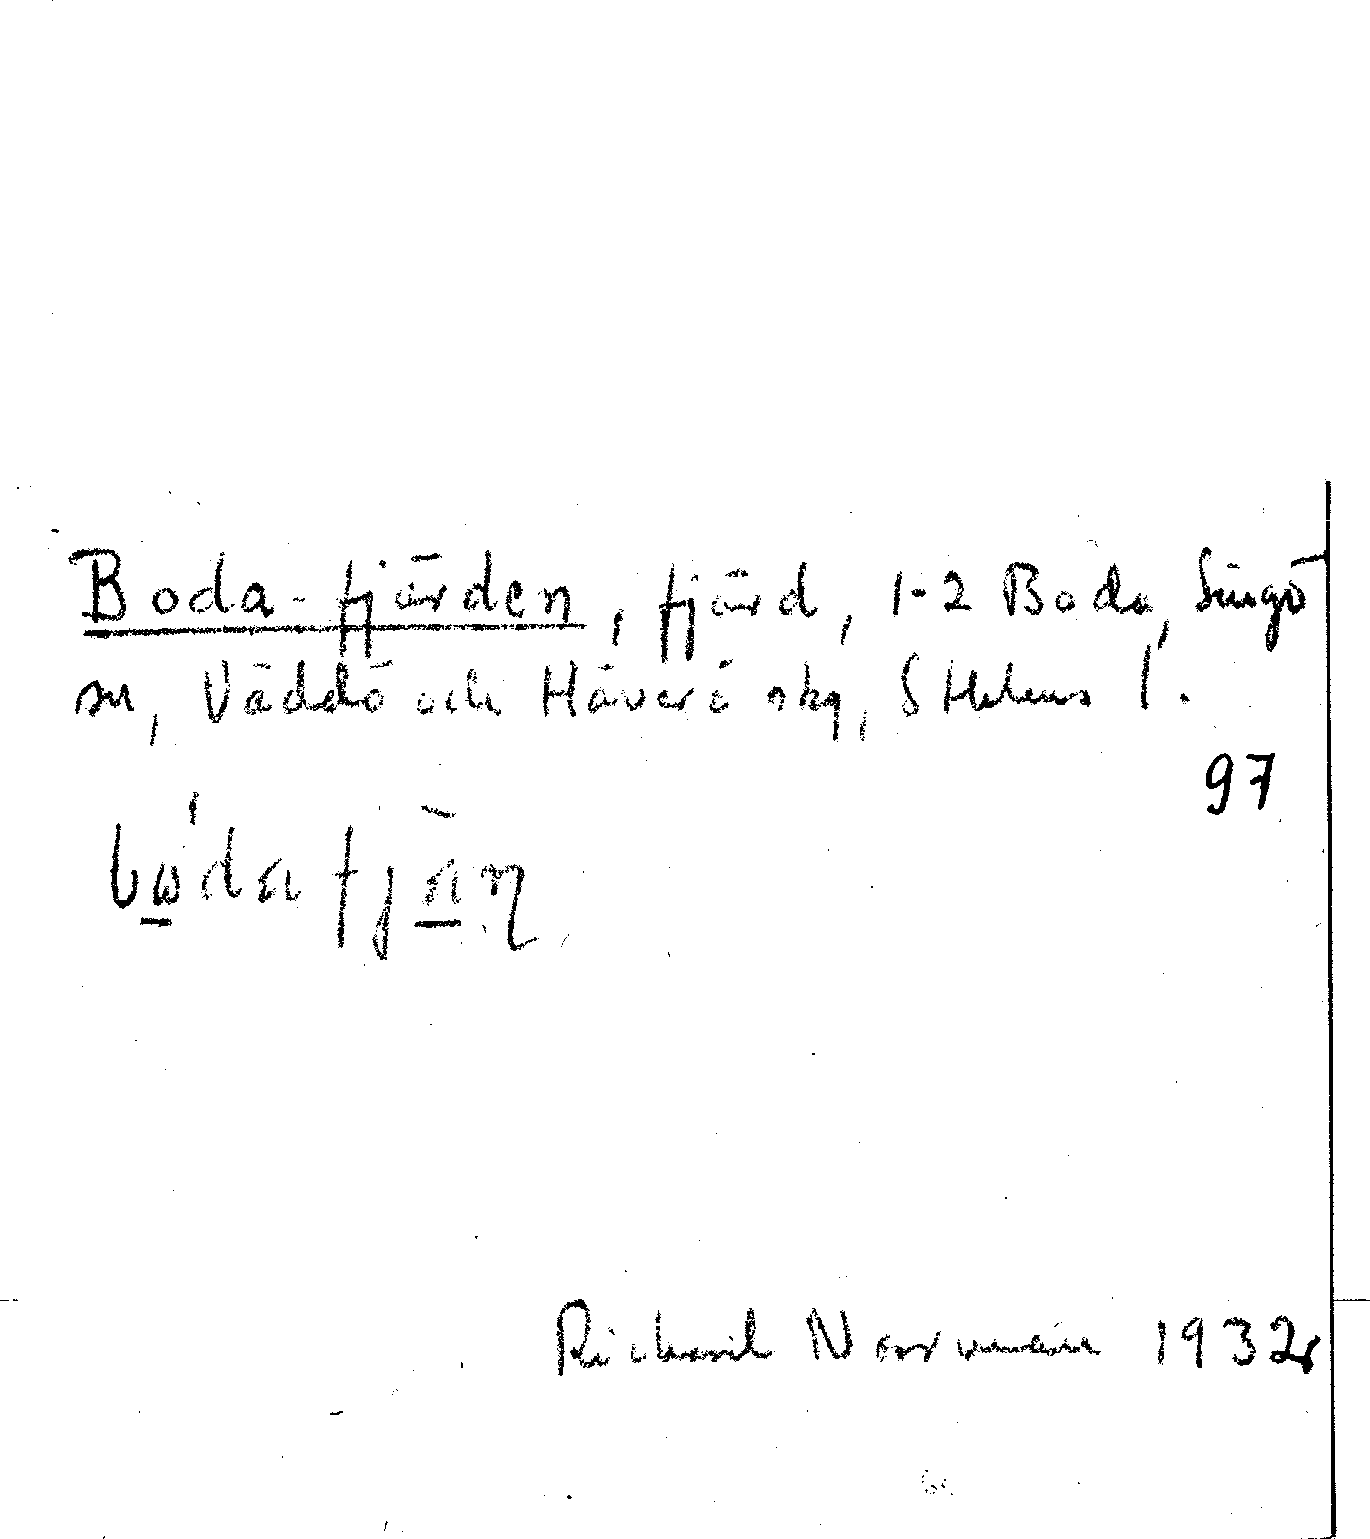 Boda-fjärden, fjärd, 1-2 Boda, Singö
sn, Väddö och Häverö skg, Sthlms l.
97
Richard Norrman 1932